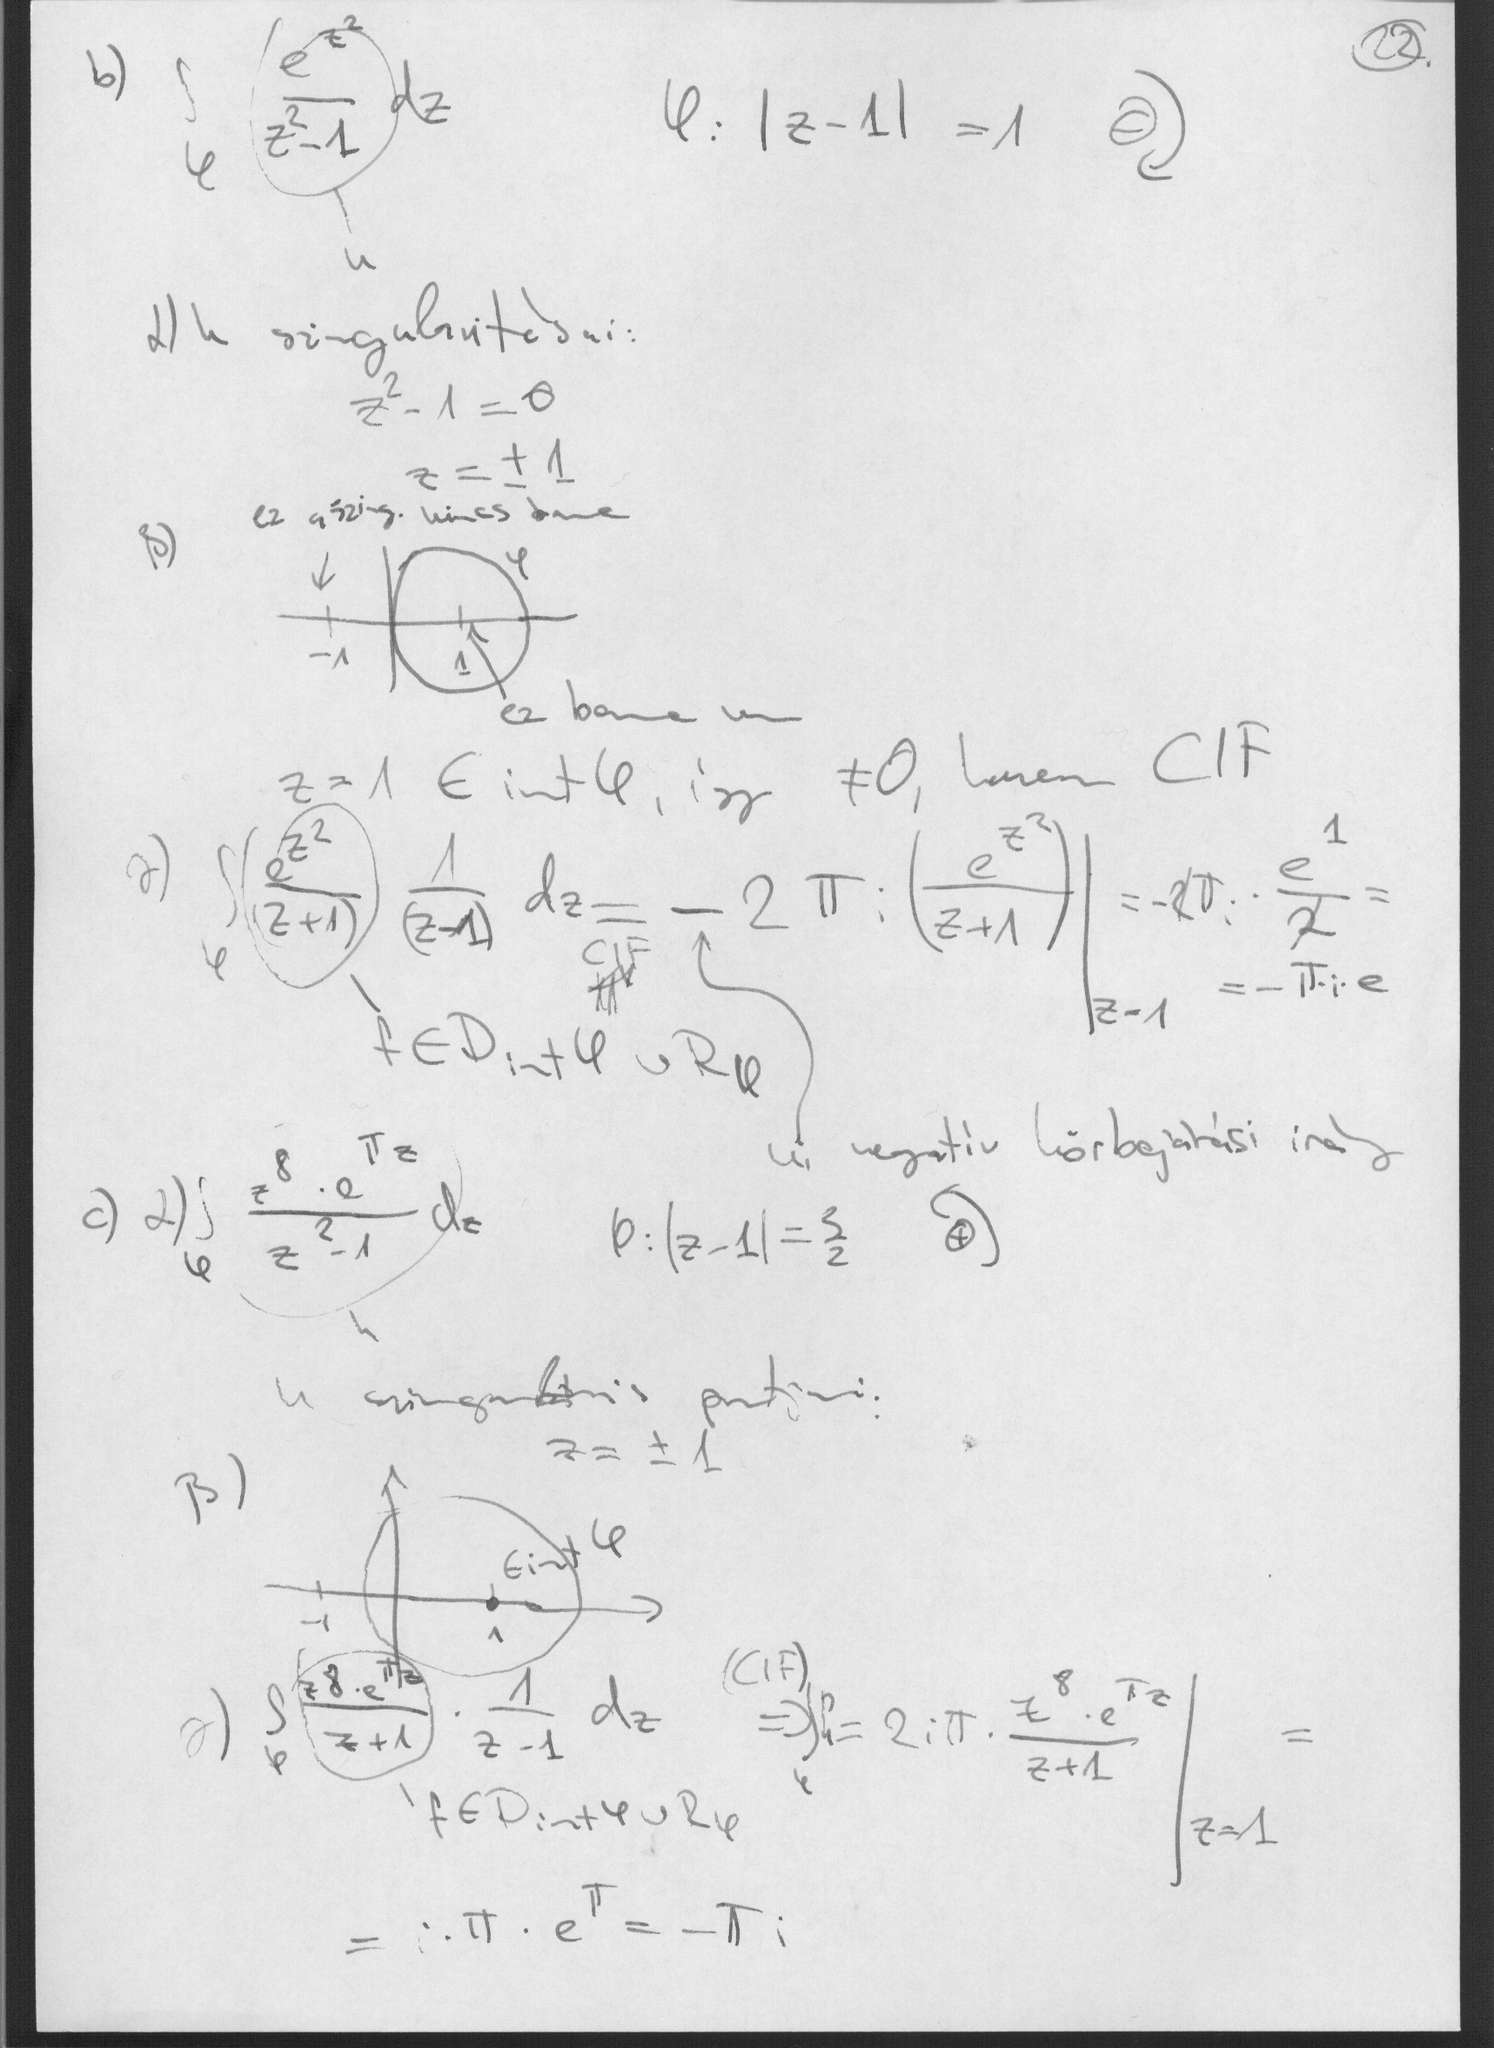 22.
b) ∫φ e^{z^2}/(z^2-1) dz φ: |z-1| = 1 ⊖
h
α) h szingularitásai:
z^2-1=0
z = ±1
ez a szing. nincs benne
β)
φ
-1 1
ez benne van
z=1 ∈ int φ, így ≠0, hanem CIF
γ) ∫φ (e^{z^2}/(z+1)) 1/(z-1) dz = -2πi (e^{z^2}/(z+1))|z-1 = -2πi · e^1/2 =
CIF
= -π·i·e
f∈D int φ ∪ Rφ
mi negatív körbejárási irány
c) α) ∫φ z^8·e^{πz}/(z^2-1) dz φ: |z-1| = 3/2 ⊕
h
h szinguláris pontjai:
z = ±1
β)
∈ int φ
-1 1
γ) ∫φ z^8·e^{πz}/(z+1) · 1/(z-1) dz (CIF) ⇒ ∫φ h = 2iπ · z^8·e^{πz}/(z+1) |z=1 =
f∈D int φ ∪ Rφ
= i·π·e^π = -πi